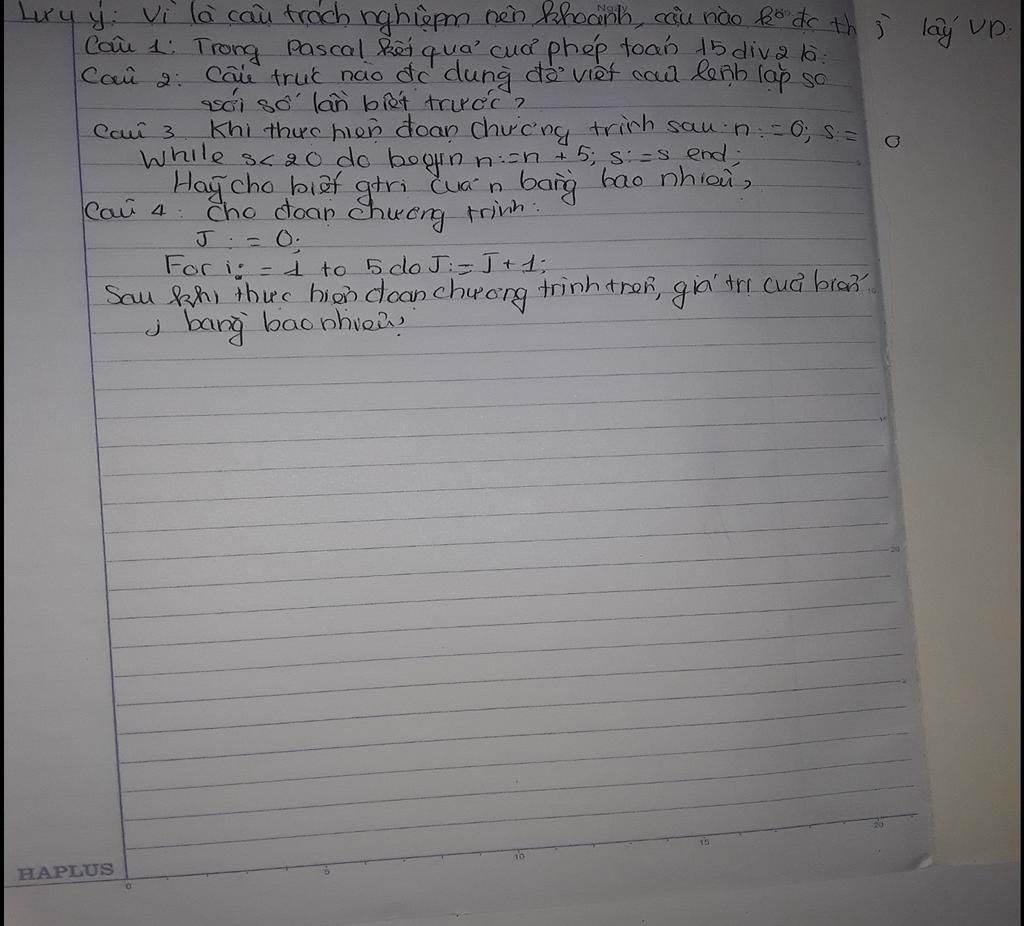 Lưu ý: Vì là câu trắch nghiệpm nên khoanh, câu nào k đc thì lấy VD.
Câu 1: Trong Pascal kết quả của phép toán 15 div 2 là:
Câu 2: Cấu trúc nào đc dùng để viết câu lệnh lặp so
với số lần biết trước?
Câu 3. Khi thực hiện đoạn chương trình sau: n:=0; s:= 0
While s<20 do begin n:=n+5; s:=s end;
Hãy cho biết gtri của n bằng bao nhiêu,
Câu 4: cho đoạn chương trình:
J:=0;
For i:=1 to 5 do J:=J+1;
Sau khi thực hiện đoạn chương trình trên, giá trị của biến
j bằng bao nhiêu,
HAPLUS
0 5 10 15 20